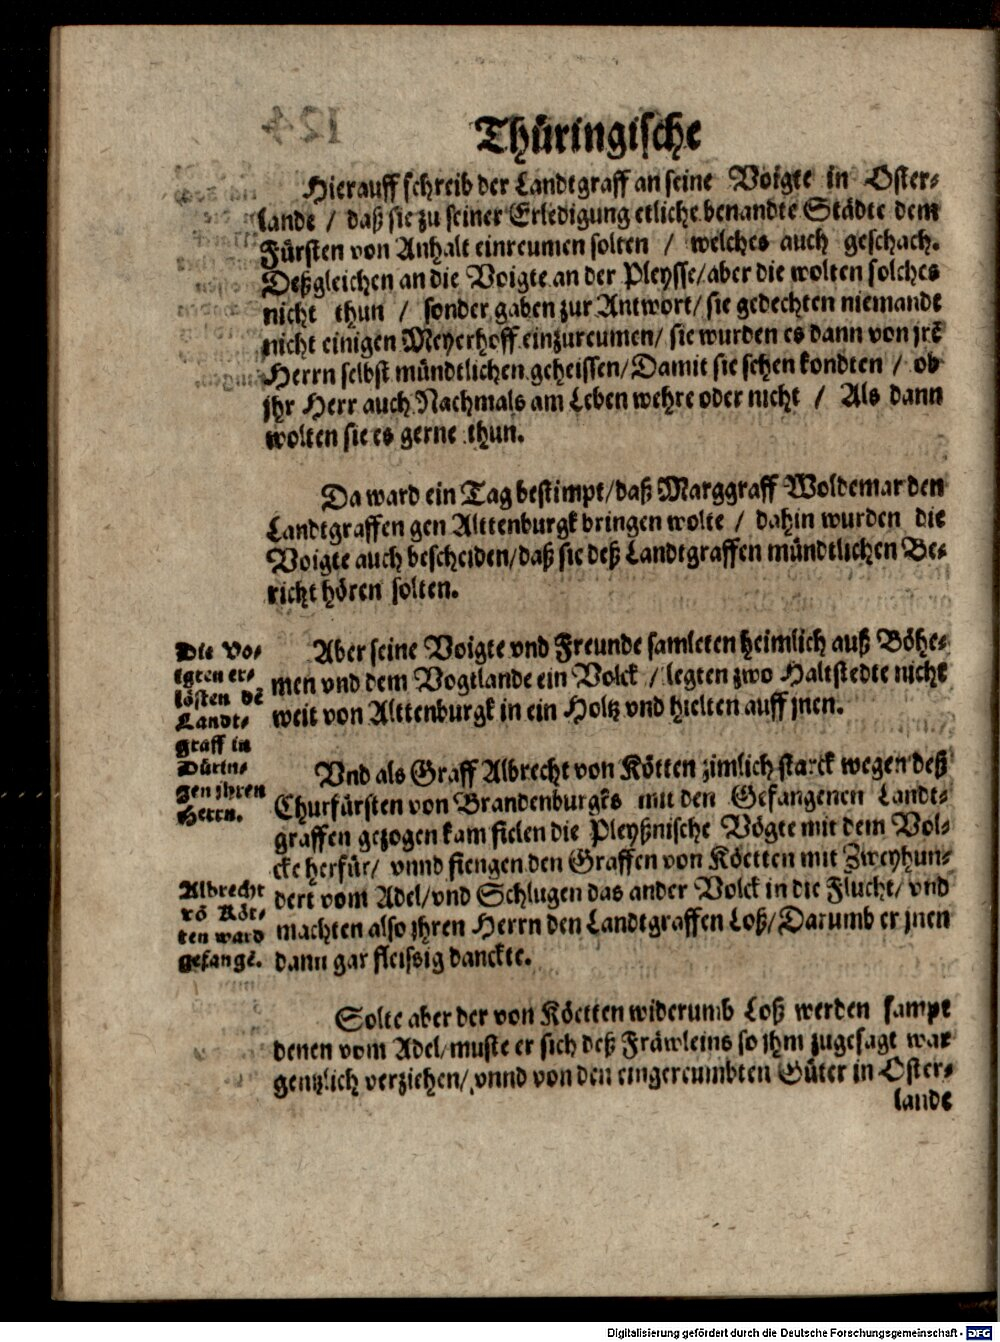 Thüringische
Hierauff schreib der Landtgraff an seine Voigte in Oster-
lande / daß sie zu seiner Erledigung etliche benandte Städte dem
Fürsten von Anhalt einreumen solten / welches auch geschach.
Deßgleichen an die Voigte an der Pleysse/ aber die wolten solches
nicht thun / sonder gaben zur Antwort/ sie gedechten niemandt
nicht einigen Meyerhoff einzureumen/ sie wurden es dann von jrē
Herrn selbst mündtlichen geheissen/ Damit sie sehen kondten / ob
jhr Herr auch Nachmals am Leben wehre oder nicht / Als dann
wolten sie es gerne thun.
Da ward ein Tag bestimpt/ daß Marggraff Woldemar den
Landtgraffen gen Alttenburgk bringen wolte / dahin wurden die
Voigte auch bescheiden/ daß sie deß Landtgraffen mündtlichen Be-
richt hören solten.
Die Vo-
igten er-
lösten dē
Landt-
graff in
Dürin-
gen jhren
Herrn.
Aber seine Voigte vnd Freunde samleten heimlich auß Böhe-
men vnd dem Vogtlande ein Volck / legten zwo Haltstedte nicht
weit von Alttenburgk in ein Holtz vnd hielten auff jnen.
Vnd als Graff Albrecht von Kötten zimlich starck wegen deß
Churfürsten von Brandenburgks mit den Gefangenen Landt-
graffen gezogen kam fielen die Pleyßnische Vögte mit dem Vol-
cke herfür/ vnnd fiengen den Graffen von Köetten mit Zweyhun-
dert vom Adel/ vnd Schlugen das ander Volck in die Flucht/ vnd
machten also jhren Herrn den Landtgraffen Loß/ Darumb er jnen
dann gar fleissig danckte.
Albrecht
vō Köt-
ten ward
gefangē.
Solte aber der von Köetten widerumb Loß werden sampt
denen vom Adel/ muste er sich deß Fräwleins so jhm zugesagt war
gentzlich verziehen/ vnnd von den eingereumbten Güter in Oster-
lande
Digitalisierung gefördert durch die Deutsche Forschungsgemeinschaft - DFG